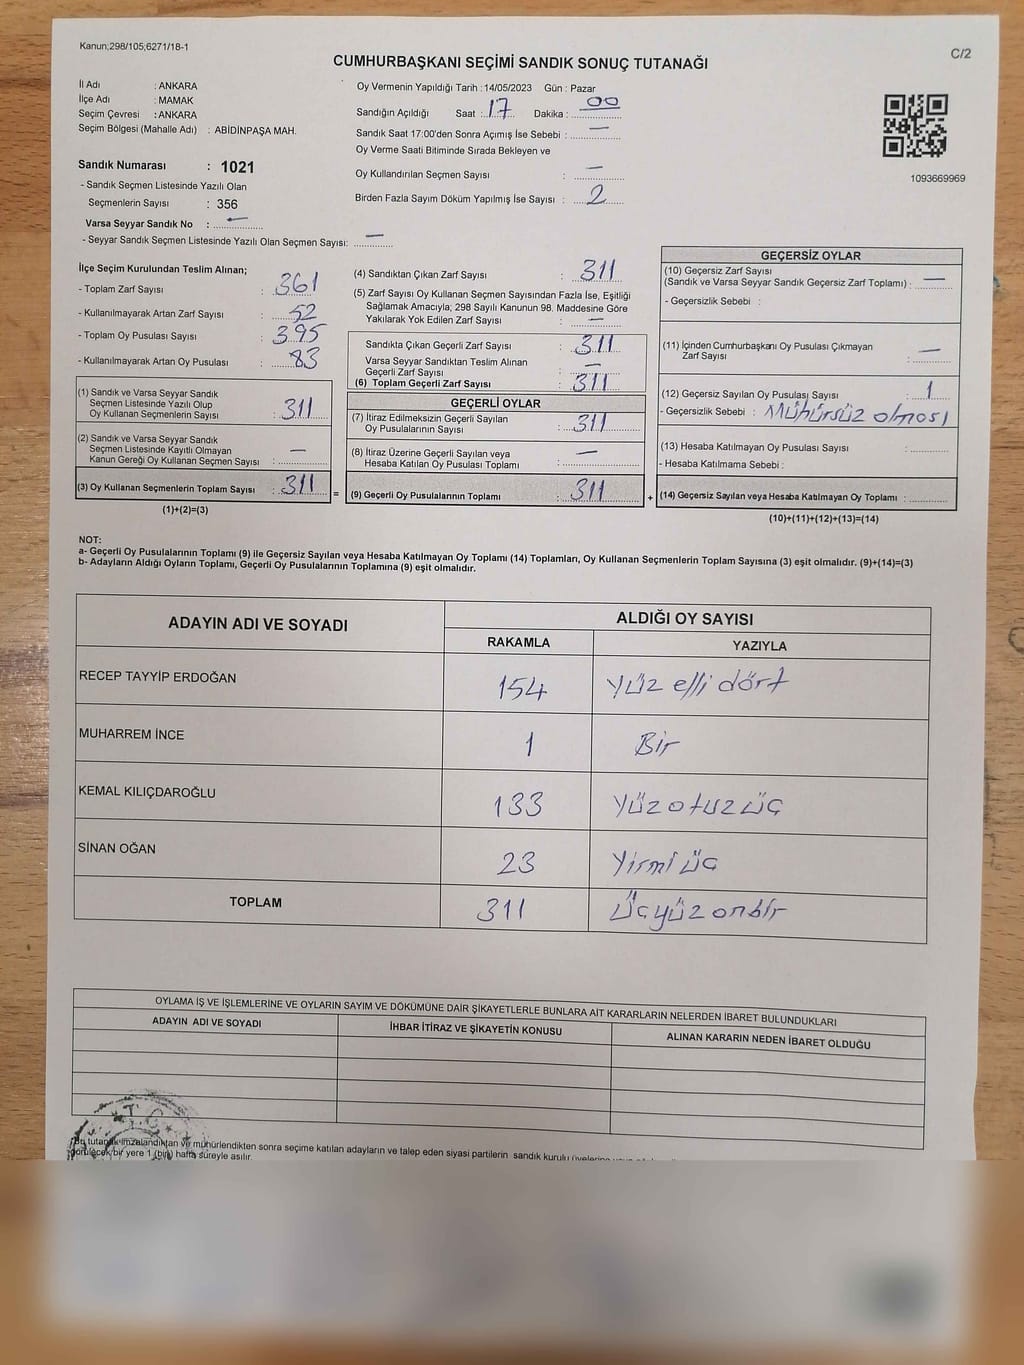 Kanun;298/105;6271/18-1
C/2
CUMHURBAŞKANI SEÇİMİ SANDIK SONUÇ TUTANAĞI
İl Adı : ANKARA
İlçe Adı : MAMAK
Seçim Çevresi : ANKARA
Seçim Bölgesi (Mahalle Adı) : ABİDİNPAŞA MAH.
Sandık Numarası : 1021
- Sandık Seçmen Listesinde Yazılı Olan
Seçmenlerin Sayısı : 356
Varsa Seyyar Sandık No : —
- Seyyar Sandık Seçmen Listesinde Yazılı Olan Seçmen Sayısı: —
Oy Vermenin Yapıldığı Tarih : 14/05/2023 Gün : Pazar
Sandığın Açıldığı Saat : 17 Dakika : 00
Sandık Saat 17:00'den Sonra Açımış İse Sebebi : —
Oy Verme Saati Bitiminde Sırada Bekleyen ve
Oy Kullandırılan Seçmen Sayısı : —
Birden Fazla Sayım Döküm Yapılmış İse Sayısı : 2
1093669969
İlçe Seçim Kurulundan Teslim Alınan;
- Toplam Zarf Sayısı : 361
- Kullanılmayarak Artan Zarf Sayısı : 52
- Toplam Oy Pusulası Sayısı : 395
- Kullanılmayarak Artan Oy Pusulası : 83
(1) Sandık ve Varsa Seyyar Sandık
Seçmen Listesinde Yazılı Olup
Oy Kullanan Seçmenlerin Sayısı : 311
(2) Sandık ve Varsa Seyyar Sandık
Seçmen Listesinde Kayıtlı Olmayan
Kanun Gereği Oy Kullanan Seçmen Sayısı : —
(3) Oy Kullanan Seçmenlerin Toplam Sayısı : 311
(1)+(2)=(3)
=
(4) Sandıktan Çıkan Zarf Sayısı : 311
(5) Zarf Sayısı Oy Kullanan Seçmen Sayısından Fazla İse, Eşitliği
Sağlamak Amacıyla; 298 Sayılı Kanunun 98. Maddesine Göre
Yakılarak Yok Edilen Zarf Sayısı : —
Sandıkta Çıkan Geçerli Zarf Sayısı : 311
Varsa Seyyar Sandıktan Teslim Alınan
Geçerli Zarf Sayısı : —
(6) Toplam Geçerli Zarf Sayısı : 311
GEÇERLİ OYLAR
(7) İtiraz Edilmeksizin Geçerli Sayılan
Oy Pusulalarının Sayısı : 311
(8) İtiraz Üzerine Geçerli Sayılan veya
Hesaba Katılan Oy Pusulası Toplamı : —
(9) Geçerli Oy Pusulalarının Toplamı : 311
+
GEÇERSİZ OYLAR
(10) Geçersiz Zarf Sayısı
(Sandık ve Varsa Seyyar Sandık Geçersiz Zarf Toplamı) : —
- Geçersizlik Sebebi :
(11) İçinden Cumhurbaşkanı Oy Pusulası Çıkmayan
Zarf Sayısı : —
(12) Geçersiz Sayılan Oy Pusulası Sayısı : 1
- Geçersizlik Sebebi : Mühürsüz olması
(13) Hesaba Katılmayan Oy Pusulası Sayısı :
- Hesaba Katılmama Sebebi :
(14) Geçersiz Sayılan veya Hesaba Katılmayan Oy Toplamı :
(10)+(11)+(12)+(13)=(14)
NOT:
a- Geçerli Oy Pusulalarının Toplamı (9) ile Geçersiz Sayılan veya Hesaba Katılmayan Oy Toplamı (14) Toplamları, Oy Kullanan Seçmenlerin Toplam Sayısına (3) eşit olmalıdır. (9)+(14)=(3)
b- Adayların Aldığı Oyların Toplamı, Geçerli Oy Pusulalarının Toplamına (9) eşit olmalıdır.
ADAYIN ADI VE SOYADI
ALDIĞI OY SAYISI
RAKAMLA YAZIYLA
RECEP TAYYİP ERDOĞAN 154 Yüz elli dört
MUHARREM İNCE 1 Bir
KEMAL KILIÇDAROĞLU 133 Yüz otuz üç
SİNAN OĞAN 23 Yirmi üç
TOPLAM 311 Üçyüz onbir
OYLAMA İŞ VE İŞLEMLERİNE VE OYLARIN SAYIM VE DÖKÜMÜNE DAİR ŞİKAYETLERLE BUNLARA AİT KARARLARIN NELERDEN İBARET BULUNDUKLARI
ADAYIN ADI VE SOYADI
İHBAR İTİRAZ VE ŞİKAYETİN KONUSU
ALINAN KARARIN NEDEN İBARET OLDUĞU
T.C.
Bu tutanak imzalandıktan ve mühürlendikten sonra seçime katılan adayların ve talep eden siyasi partilerin sandık kurulu
görülecek bir yere 1 (bir) hafta süreyle asılır.